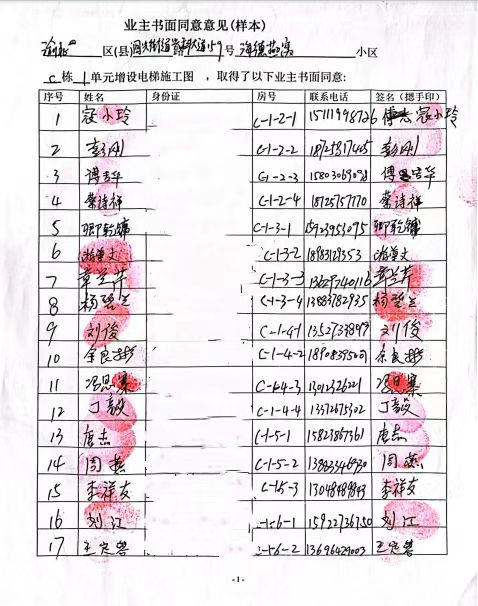 业主书面同意意见(样本)
渝北 区(县) 号 小区
C栋 1 单元增设电梯施工图 ，取得了以下业主书面同意:
序号 姓名 身份证 房号 联系电话 签名（摁手印）
1 寇小玲 C-1-2-1 15111998726 寇小玲
2 彭刚 C-1-2-2 18725817405 彭刚
3 傅吉华 C-1-2-3 15803069098 傅吉华
4 蔡诗祥 C-1-2-4 18725757770 蔡诗祥
5 C-1-3-1 15923953075
6 C-1-3-2 18983129353
7 章兰芹 C-1-3-3 13629740116 章兰芹
8 杨碧兰 C-1-3-4 13883782935 杨碧兰
9 刘俊 C-1-4-1 刘俊
10 余良彬 C-1-4-2 余良彬
11 冯思寨 C-1-4-3 13012326221 冯思寨
12 丁毅 C-1-4-4 13372675302 丁毅
13 唐志 C-1-5-1 15823867361 唐志
14 周燕 C-1-5-2 13883346930 周燕
15 李祥友 C-1-5-3 13048489849 李祥友
16 刘江 -1-6-1 15922736750 刘江
17 王定碧 -1-6-2 13696429003 王定碧
-1-